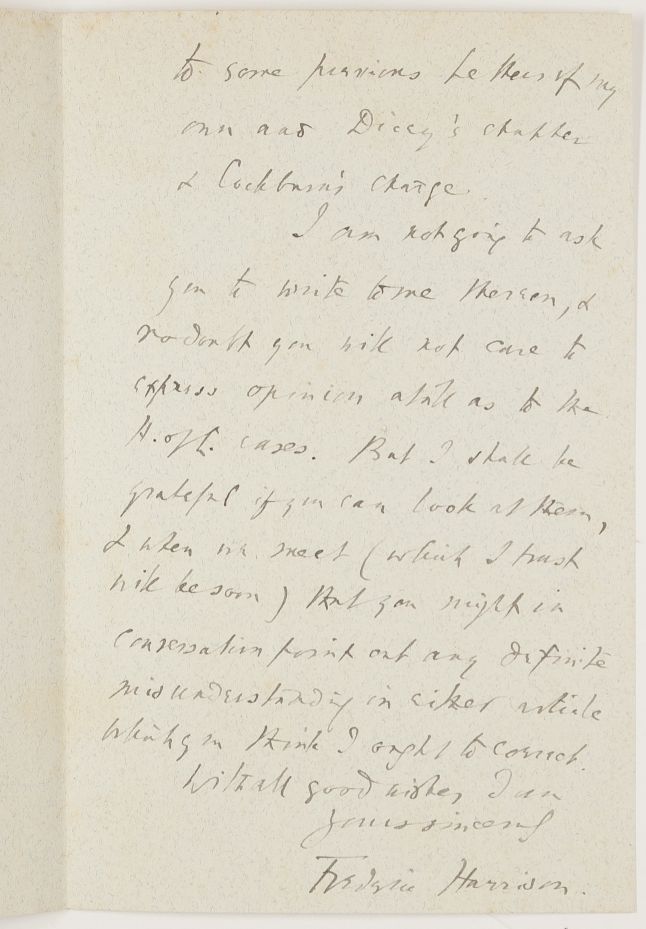 to some previous letters of my
own and Dicey's chapter
& Cockburn's charge.
I am not going to ask
you to write to me thereon, &
no doubt you will not care to
express opinion at all as to the
H. of L. cases. But I shall be
grateful if you can look at them,
& when we meet (which I trust
will be soon) that you might in
conversation point out any definite
misunderstanding in either article
which you think I ought to correct.
With all good wishes, I am
yours sincerely
Frederic Harrison.